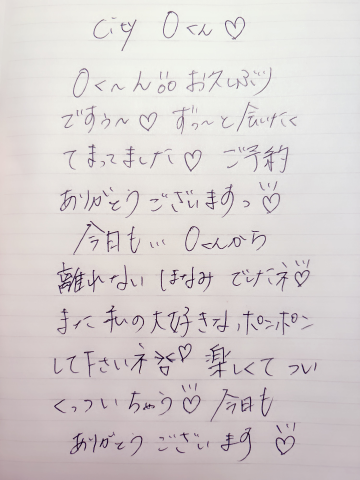 city Oくん♡
Oく〜ん!!! お久しぶり
ですぅ〜♡ ずっ〜と会いたく
てまってました♡ ご予約
ありがとうございますっ♡
今日も… Oくんから
離れない ほなみ でしたネ♡
また私の大好きな、ポンポン
して下さいネ♡ 楽しくてつい
くっついちゃう♡ 今日も
ありがとうございます♡